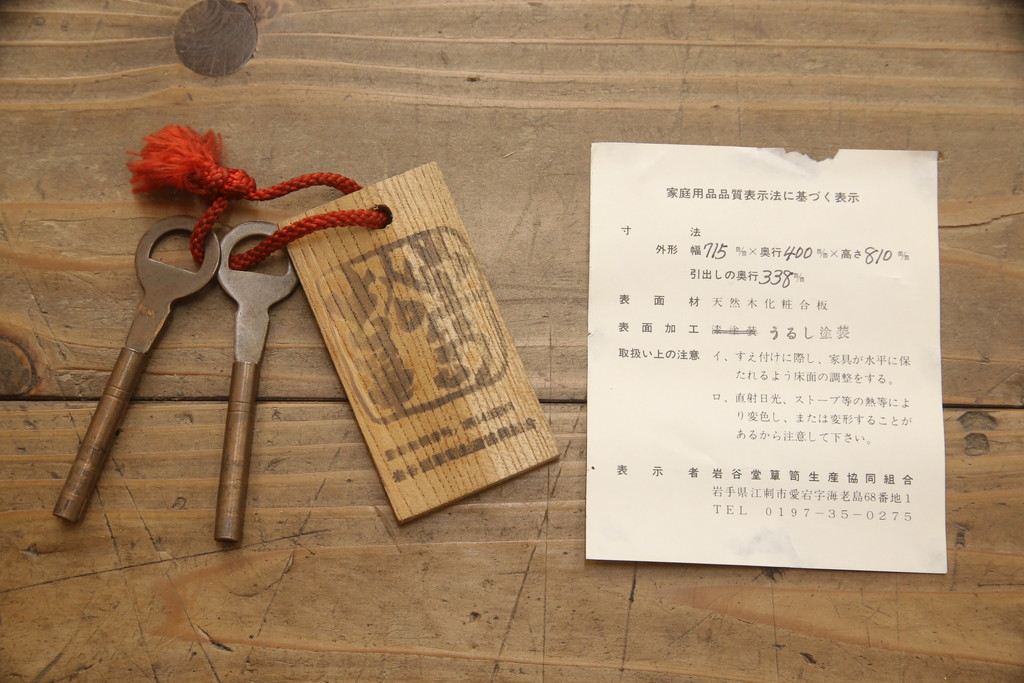 家庭用品品質表示法に基づく表示
寸法
外形 幅715m/m×奥行400m/m×高さ810m/m
引出しの奥行338m/m
表面材 天然木化粧合板
表面加工 漆塗装 うるし塗装
取扱い上の注意 イ、すえ付けに際し、家具が水平に保
たれるよう床面の調整をする。
ロ、直射日光、ストーブ等の熱等によ
り変色し、または変形することが
あるから注意して下さい。
表示者 岩谷堂簞笥生産協同組合
岩手県江刺市愛宕字海老島68番地1
TEL 0197-35-0275